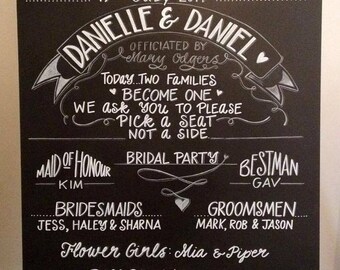 DANIELLE & DANIEL
OFFICIATED BY
Mary Odgers
TODAY TWO FAMILIES
BECOME ONE
WE ASK YOU TO PLEASE
PICK A SEAT
NOT A SIDE
MAID OF HONOUR
KIM
BRIDAL PARTY
BESTMAN
GAV
BRIDESMAIDS
JESS, HALEY & SHARNA
GROOMSMEN
MARK, ROB & JASON
Flower Girls: Mia & Piper